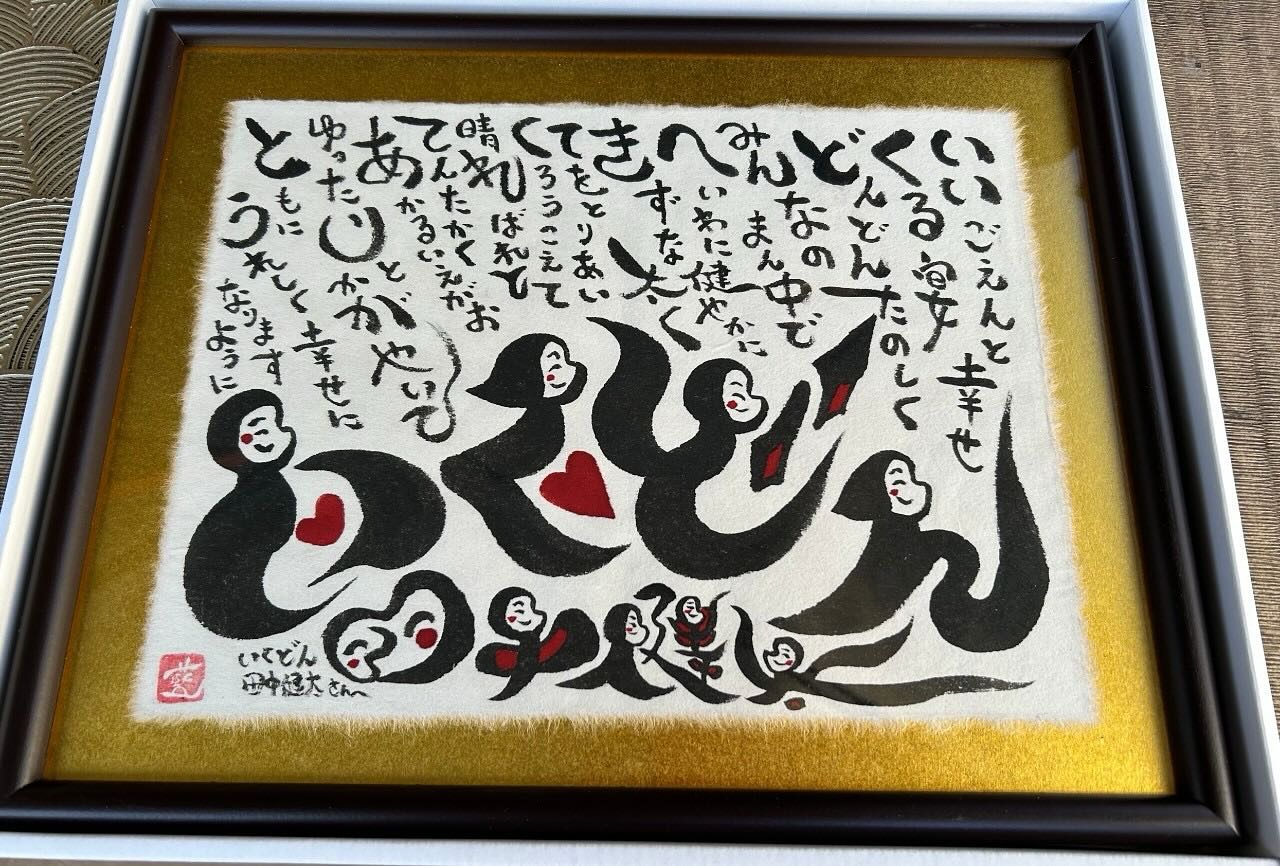 いいごえんと幸せ
くる宴
どんどんたのしく
みんなのまん中で
へいわに健やかに
きずな太く
てをとりあい
くろうこえて
晴ればれと
てんたかく
あかるいえがお
ゆったりとかがやいて
ともに幸せに
うれしくなりますように
いくどん
田中健太
いくどん
田中健太さんへ